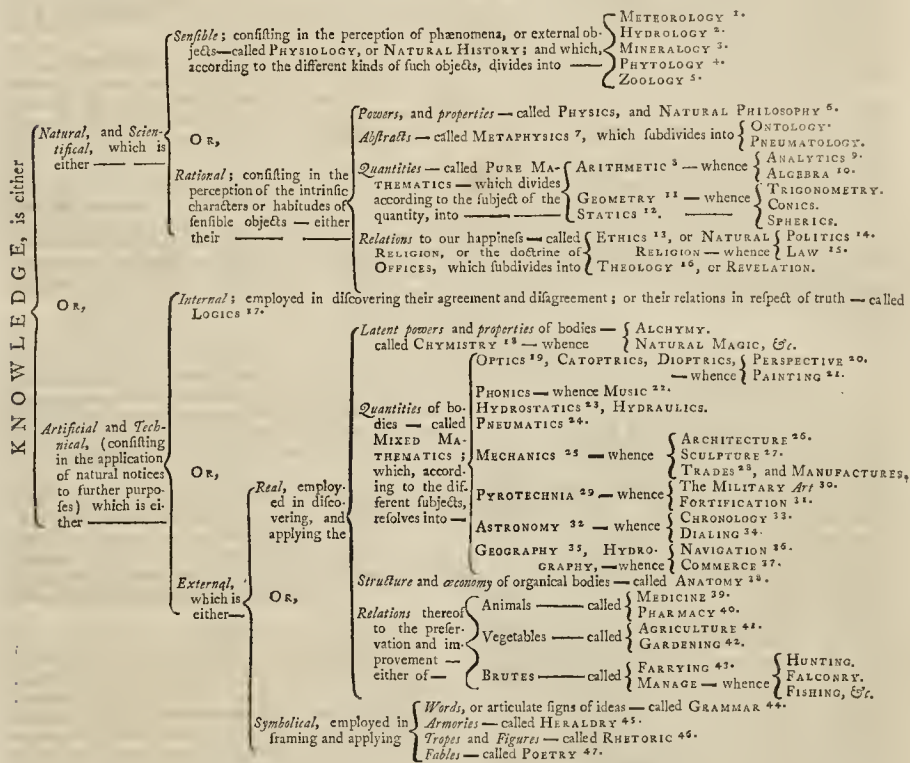 KNOWLEDGE, is either
Natural, and Scien-
tifical, which is
either
Senſible; conſiſting in the perception of phænomena, or external ob-
jects—called PHYSIOLOGY, or NATURAL HISTORY; and which,
according to the different kinds of ſuch objects, divides into
METEOROLOGY 1.
HYDROLOGY 2.
MINERALOGY 3.
PHYTOLOGY 4.
ZOOLOGY 5.
OR,
Rational; conſiſting in the
perception of the intrinſic
characters or habitudes of
ſenſible objects — either
their
Powers, and properties — called PHYSICS, and NATURAL PHILOSOPHY 6.
Abſtracts — called METAPHYSICS 7, which ſubdivides into
ONTOLOGY.
PNEUMATOLOGY.
Quantities — called PURE MA-
THEMATICS — which divides
according to the ſubject of the
quantity, into
ARITHMETIC 8 — whence
ANALYTICS 9.
ALGEBRA 10.
GEOMETRY 11 — whence
STATICS 12.
TRIGONOMETRY.
CONICS.
SPHERICS.
Relations to our happineſs — called
RELIGION, or the doctrine of
OFFICES, which ſubdivides into
ETHICS 13, or NATURAL
RELIGION — whence
POLITICS 14.
LAW 15.
THEOLOGY 16, or REVELATION.
OR,
Artificial and Tech-
nical, (conſiſting
in the application
of natural notices
to further purpo-
ſes) which is ei-
ther
Internal; employed in diſcovering their agreement and diſagreement; or their relations in reſpect of truth — called
LOGICS 17.
OR,
External,
which is
either
Real, employ-
ed in diſco-
vering, and
applying the
Latent powers and properties of bodies —
called CHYMISTRY 18 — whence
ALCHYMY.
NATURAL MAGIC, &c.
Quantities of bo-
dies — called
MIXED MA-
THEMATICS;
which, accord-
ing to the diſ-
ferent ſubjects,
reſolves into
OPTICS 19, CATOPTRICS, DIOPTRICS,
— whence
PERSPECTIVE 20.
PAINTING 21.
PHONICS — whence MUSIC 22.
HYDROSTATICS 23, HYDRAULICS.
PNEUMATICS 24.
MECHANICS 25 — whence
ARCHITECTURE 26.
SCULPTURE 27.
TRADES 28, and MANUFACTURES,
PYROTECHNIA 29 — whence
The MILITARY Art 30.
FORTIFICATION 31.
ASTRONOMY 32 — whence
CHRONOLOGY 33.
DIALING 34.
GEOGRAPHY 35, HYDRO-
GRAPHY, — whence
NAVIGATION 36.
COMMERCE 37.
Structure and œconomy of organical bodies — called ANATOMY 38.
Relations thereof
to the preſer-
vation and im-
provement —
either of
Animals — called
MEDICINE 39.
PHARMACY 40.
Vegetables — called
AGRICULTURE 41.
GARDENING 42.
BRUTES — called
FARRYING 43.
MANAGE — whence
HUNTING.
FALCONRY.
FISHING, &c.
OR,
Symbolical, employed in
framing and applying
Words, or articulate ſigns of ideas — called GRAMMAR 44.
Armories — called HERALDRY 45.
Tropes and Figures — called RHETORIC 46.
Fables — called POETRY 47.